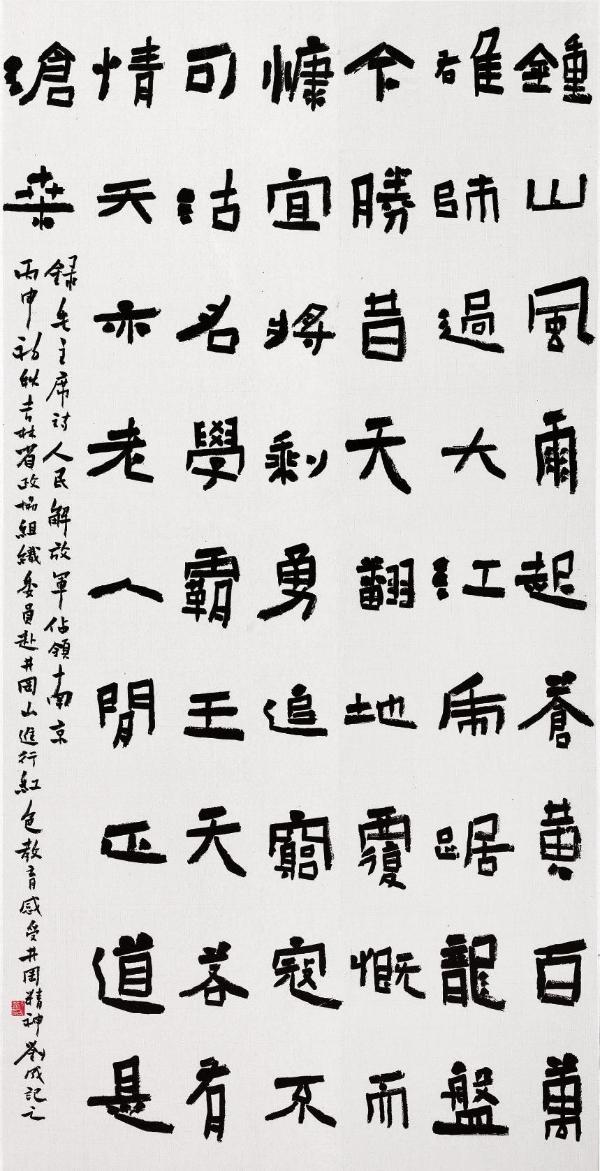 鍾山風雨起蒼黃百萬
雄師過大江虎踞龍盤
今勝昔天翻地覆慨而
慷宜將剩勇追窮寇不
可沽名學霸王天若有
情天亦老人間正道是
滄桑
錄毛主席詩人民解放軍佔領南京
丙申初秋吉林省政協組織委員赴井岡山進行紅色教育感受井岡精神劉成記之